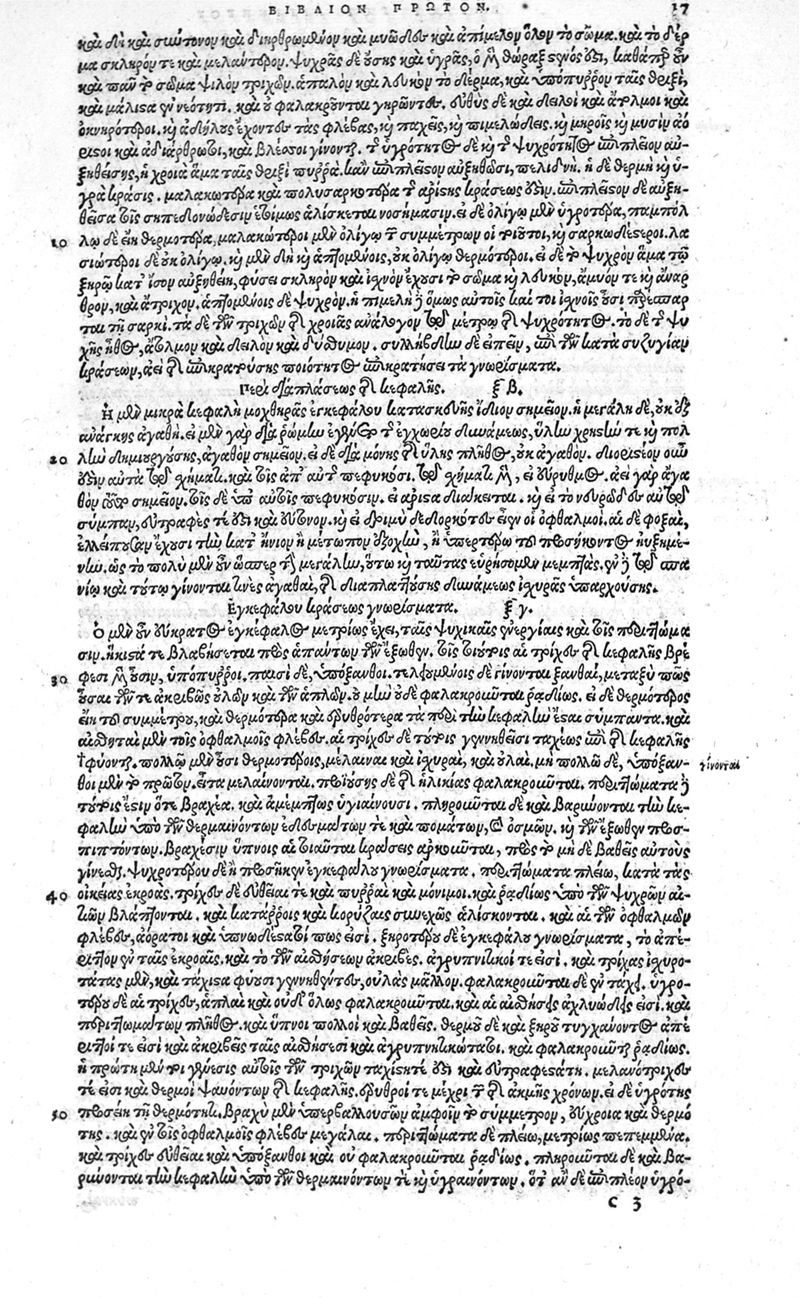 ΒΙΒΛΙΟΝ ΠΡΩΤΟΝ. 17
καὶ δὴ καὶ σύντονον καὶ διηρθρωμένον καὶ μυῶδες καὶ ἀπίμελον ὅλον τὸ σῶμα. καὶ τὸ δέρ
μα σκληρόν τε καὶ μελαντερον. ψυχρᾶς δὲ οὔσης καὶ ὑγρᾶς, ὁ μὲν θώραξ στενός ἐστι, καθάπερ οὖν
καὶ πᾶν τὸ σῶμα ψιλὸν τριχῶν. ἁπαλὸν καὶ λευκὸν τὸ δέρμα, καὶ ὑπόπυῤῥον ταῖς θριξὶ,
καὶ μάλιστα ἐν νεότητι. καὶ οὐ φαλακροῦνται γηρῶντες. εὐθὺς δὲ καὶ δειλοὶ καὶ ἄτολμοι καὶ
ὀκνηρότεροι. καὶ ἀδήλους ἔχοντες τὰς φλέβας, καὶ παχεῖς, καὶ πιμελώδεις. καὶ νεύροις καὶ μυσὶν ἄῤ
ῥωστοι καὶ ἀδιάρθρωτοι, καὶ βλαισοὶ γίνονται. τῆς ὑγρότητος δὲ καὶ τῆς ψυχρότητος ἐπιπλεῖον αὐ-
ξηθείσης, ἡ χροιὰ ἅμα ταῖς θριξὶ πυῤῥά. κἂν ἐπιπλεῖστον αὐξηθῶσι, πελιδνή. ἡ δὲ θερμὴ καὶ ὑ-
γρὰ κρᾶσις. μαλακωτέρα καὶ πολυσαρκοτέρα τῆς ἀρίστης κράσεως ἐστιν. ἐπιπλεῖστον δὲ αὐξη-
θεῖσα τοῖς σηπεδονώδεσιν ἑτοίμως ἁλίσκεται νοσήμασιν. εἰ δὲ ὀλίγω μὲν ὑγροτέρα, παμπόλ
10 λω δὲ εἴη θερμοτέρα, μαλακώτεροι μὲν ὀλίγω τῶν συμμέτρων οἱ τοιοῦτοι, καὶ σαρκωδέστεροι. λα
σιώτεροι δὲ οὐκ ὀλίγω. καὶ μὲν δὴ καὶ ἁπτομένοις, οὐκ ὀλίγω θερμότεροι. εἰ δὲ τὸ ψυχρὸν ἅμα τῶ
ξηρῶ κατ' ἴσον αὐξηθείη, φύσει σκληρὸν καὶ ἰσχνὸν ἔχουσι τὸ σῶμα καὶ λευκὸν, ἄμυόν τε καὶ ἄναρ
θρον, καὶ ἄτριχον. ἁπτομένοις δὲ ψυχρόν. ἡ πιμελὴ δὲ ὅμως αὐτοῖς καί τοι ἰσχνοῖς οὖσι παρέσπαρ
ται τῆ σαρκί. τὰ δὲ τῶν τριχῶν τῆς χροιᾶς ἀνάλογον τῶ μέτρω τῆς ψυχρότητος. τὸ δὲ τῆς ψυ
χῆς ἦθος, ἄτολμον καὶ δειλὸν καὶ δύσθυμον. συλλήβδην δὲ εἰπεῖν, ἐπὶ τῶν κατὰ συζυγίαν
κράσεων, ἀεὶ τῆς ἐπικρατούσης ποιότητος ἐπικρατήσει τὰ γνωρίσματα.
Περὶ διαπλάσεως τῆς κεφαλῆς. ξ β.
Η μὲν μικρὰ κεφαλὴ μοχθηρᾶς ἐγκεφάλου κατασκευῆς ἴδιον σημεῖον. ἡ μεγάλη δὲ, οὐκ ἐξ
ἀνάγκης ἀγαθή. εἰ μὲν γὰρ διὰ ῥώμην ἐγένετο τῆς ἐγχωρίου δυνάμεως, ὕλην χρηστήν τε καὶ πολ
20 λὴν δημιουργούσης, ἀγαθὸν σημεῖον. εἰ δὲ διὰ μόνης τῆς ὕλης πλῆθος, οὐκ ἀγαθόν. διοριστέον οὖν
αὐτὰ τῶ σχήματι. καὶ τοῖς ἀπ' αὐτῆς πεφυκόσι. τῶ σχήματι μὲν, εἰ εὔρυθμος. ἀεὶ γὰρ ἀγα
θὸν τοῦτο σημεῖον. τοῖς δὲ ὑπ' αὐτοῖς πεφυκόσιν. εἰ ἄριστα διάκειται. καὶ εἰ τὸ νευρῶδες αὐτῶ
σύμπαν, εὐτραφές τε ἐστι καὶ εὔτονον. καὶ εἰ δριμὺ δεδορκότες εἶεν οἱ ὀφθαλμοί. αἱ δὲ φοξαὶ,
ἐλλείπουσαν ἔχουσι τὴν κατ' ἰνίον ἢ μέτωπον ἐξοχὴν, ἢ ὑπερτέρω τοῦ προσήκοντος ηὐξημέ-
νην. ὡς τὸ πολὺ μὲν οὖν ὥσπερ τὴν μεγάλην, οὕτω καὶ ταύτας εὑρήσομεν μεμπτὰς. ἐν δὲ τῶ σπα
νίω καὶ τούτω γίνονταί τινες ἀγαθαὶ, τῆς διαπλαττούσης δυνάμεως ἰσχυρᾶς ὑπαρχούσης.
Εγκεφάλου κράσεως γνωρίσματα. ξ γ.
Ο μὲν οὖν εὔκρατος ἐγκέφαλος μετρίως ἔχει, ταῖς ψυχικαῖς ἐνεργείαις καὶ τοῖς περιττώμα
σιν. ἥκιστά τε βλαβήσεται πρὸς ἁπάντων τῶν ἔξωθεν. τοῖς τοιούτοις αἱ τρίχες τῆς κεφαλῆς βρέ
30 φεσι μὲν οὖσιν, ὑπόπυῤῥοι. παισὶ δὲ, ὑπόξανθοι. τελουμένοις δὲ γίνονται ξανθαὶ, μεταξύ πως
οὖσαι τῶν τε ἀκριβῶς οὔλων καὶ τῶν ἁπλῶν. οὐ μὴν οὐδὲ φαλακροῦνται ῥαδίως. εἰ δὲ θερμότερος
εἴη τοῦ συμμέτρου, καὶ θερμότερα καὶ ἐρυθρότερα τὰ περὶ τὴν κεφαλὴν ἔσται σύμπαντα. καὶ
αἰσθηταὶ μὲν τοῖς ὀφθαλμοῖς φλέβες. αἱ τρίχες δὲ τούτοις γεννηθεῖσι ταχέως ἐπὶ τῆς κεφαλῆς
†φύονται. πολλῶ μὲν οὖσι θερμοτέροις, μέλαιναι καὶ ἰσχυραὶ, καὶ οὖλαι. μὴ πολλῶ δὲ, ὑπόξαν- γίνονται
θοι μὲν τὸ πρῶτον. εἶτα μελαίνονται. προϊούσης δὲ τῆς ἡλικίας φαλακροῦνται. περιττώματα δὲ
τούτοις ἐστὶν ὅτε βραχέα. καὶ ἀμέμπτως ὑγιαίνουσι. πληροῦνται δὲ καὶ βαρύνονται τὴν κε-
φαλὴν ὑπὸ τῶν θερμαινόντων ἐδεσμάτων τε καὶ πομάτων, καὶ ὀσμῶν. καὶ τῶν ἔξωθεν προσ-
πιπτόντων. βραχέσιν ὕπνοις αἱ τοιαῦται κράσεις ἀρκοῦνται, πρὸς τὸ μὴ δὲ βαθεῖς αὐτοὺς
γίνεσθαι. ψυχροτέρου δὲ ἢ προσῆκεν ἐγκεφάλου γνωρίσματα. περιττώματα πλείω, κατὰ τὰς
40 οἰκείας ἐκροάς. τρίχες δὲ εὐθεῖαί τε καὶ πυῤῥαὶ καὶ μόνιμοι. καὶ ῥαδίως ὑπὸ τῶν ψυχρῶν αἰ-
τιῶν βλάπτονται. καὶ κατάῤῥοις καὶ κορύζαις συνεχῶς ἁλίσκονται. καὶ αἱ τῶν ὀφθαλμῶν
φλέβες, ἀόρατοι καὶ ὑπνωδέστατοί πως εἰσί. ξηροτέρου δὲ ἐγκεφάλου γνωρίσματα, τὸ ἀπέ-
ριττον ἐν ταῖς ἐκροαῖς. καὶ τὸ τῶν αἰσθήσεων ἀκριβές. ἀγρυπνητικοί τε εἰσί. καὶ τρίχας ἰσχυρο-
τάτας μὲν, καὶ τάχιστα φύουσι γεννηθέντες, οὔλας μᾶλλον. φαλακροῦνται δὲ ἐν τάχει. ὑγρο-
τέρου δὲ αἱ τρίχες, ἁπλαῖ καὶ οὐδ' ὅλως φαλακροῦνται. καὶ αἱ αἰσθήσεις ἀχλυώδεις εἰσί. καὶ
περιττωμάτων πλῆθος. καὶ ὕπνοι πολλοὶ καὶ βαθεῖς. θερμοῦ δὲ καὶ ξηροῦ τυγχάνοντος ἀπέ
ριττοί τε εἰσὶ καὶ ἀκριβεῖς ταῖς αἰσθήσεσι καὶ ἀγρυπνητικώτατοι. καὶ φαλακροῦνται ῥαδίως.
ἡ πρώτη μέν τοι γένεσις αὐτοῖς τῶν τριχῶν ταχίστη τέ ἐστι καὶ εὐτραφεστάτη. μελανότριχές
τέ εἰσι καὶ θερμοὶ ψαυόντων τῆς κεφαλῆς. ἐρυθροί τε μέχρι τῶν τῆς ἀκμῆς χρόνων. εἰ δὲ ὑγρότης
50 προσείη τῆ θερμότητι. βραχὺ μὲν ὑπερβαλλουσῶν ἀμφοῖν τὸ σύμμετρον, εὔχροια καὶ θερμό
της. καὶ ἐν τοῖς ὀφθαλμοῖς φλέβες μεγάλαι. περιττώματα δὲ πλείω, μετρίως πεπεμμένα.
καὶ τρίχες εὐθεῖαι καὶ ὑπόξανθοι καὶ οὐ φαλακροῦνται ῥαδίως. πληροῦνται δὲ καὶ βα-
ρύνονται τὴν κεφαλὴν ὑπὸ τῶν θερμαινόντων τε καὶ ὑγραινόντων. ὅτ' ἂν δὲ ἐπιπλέον ὑγρό-
C 3